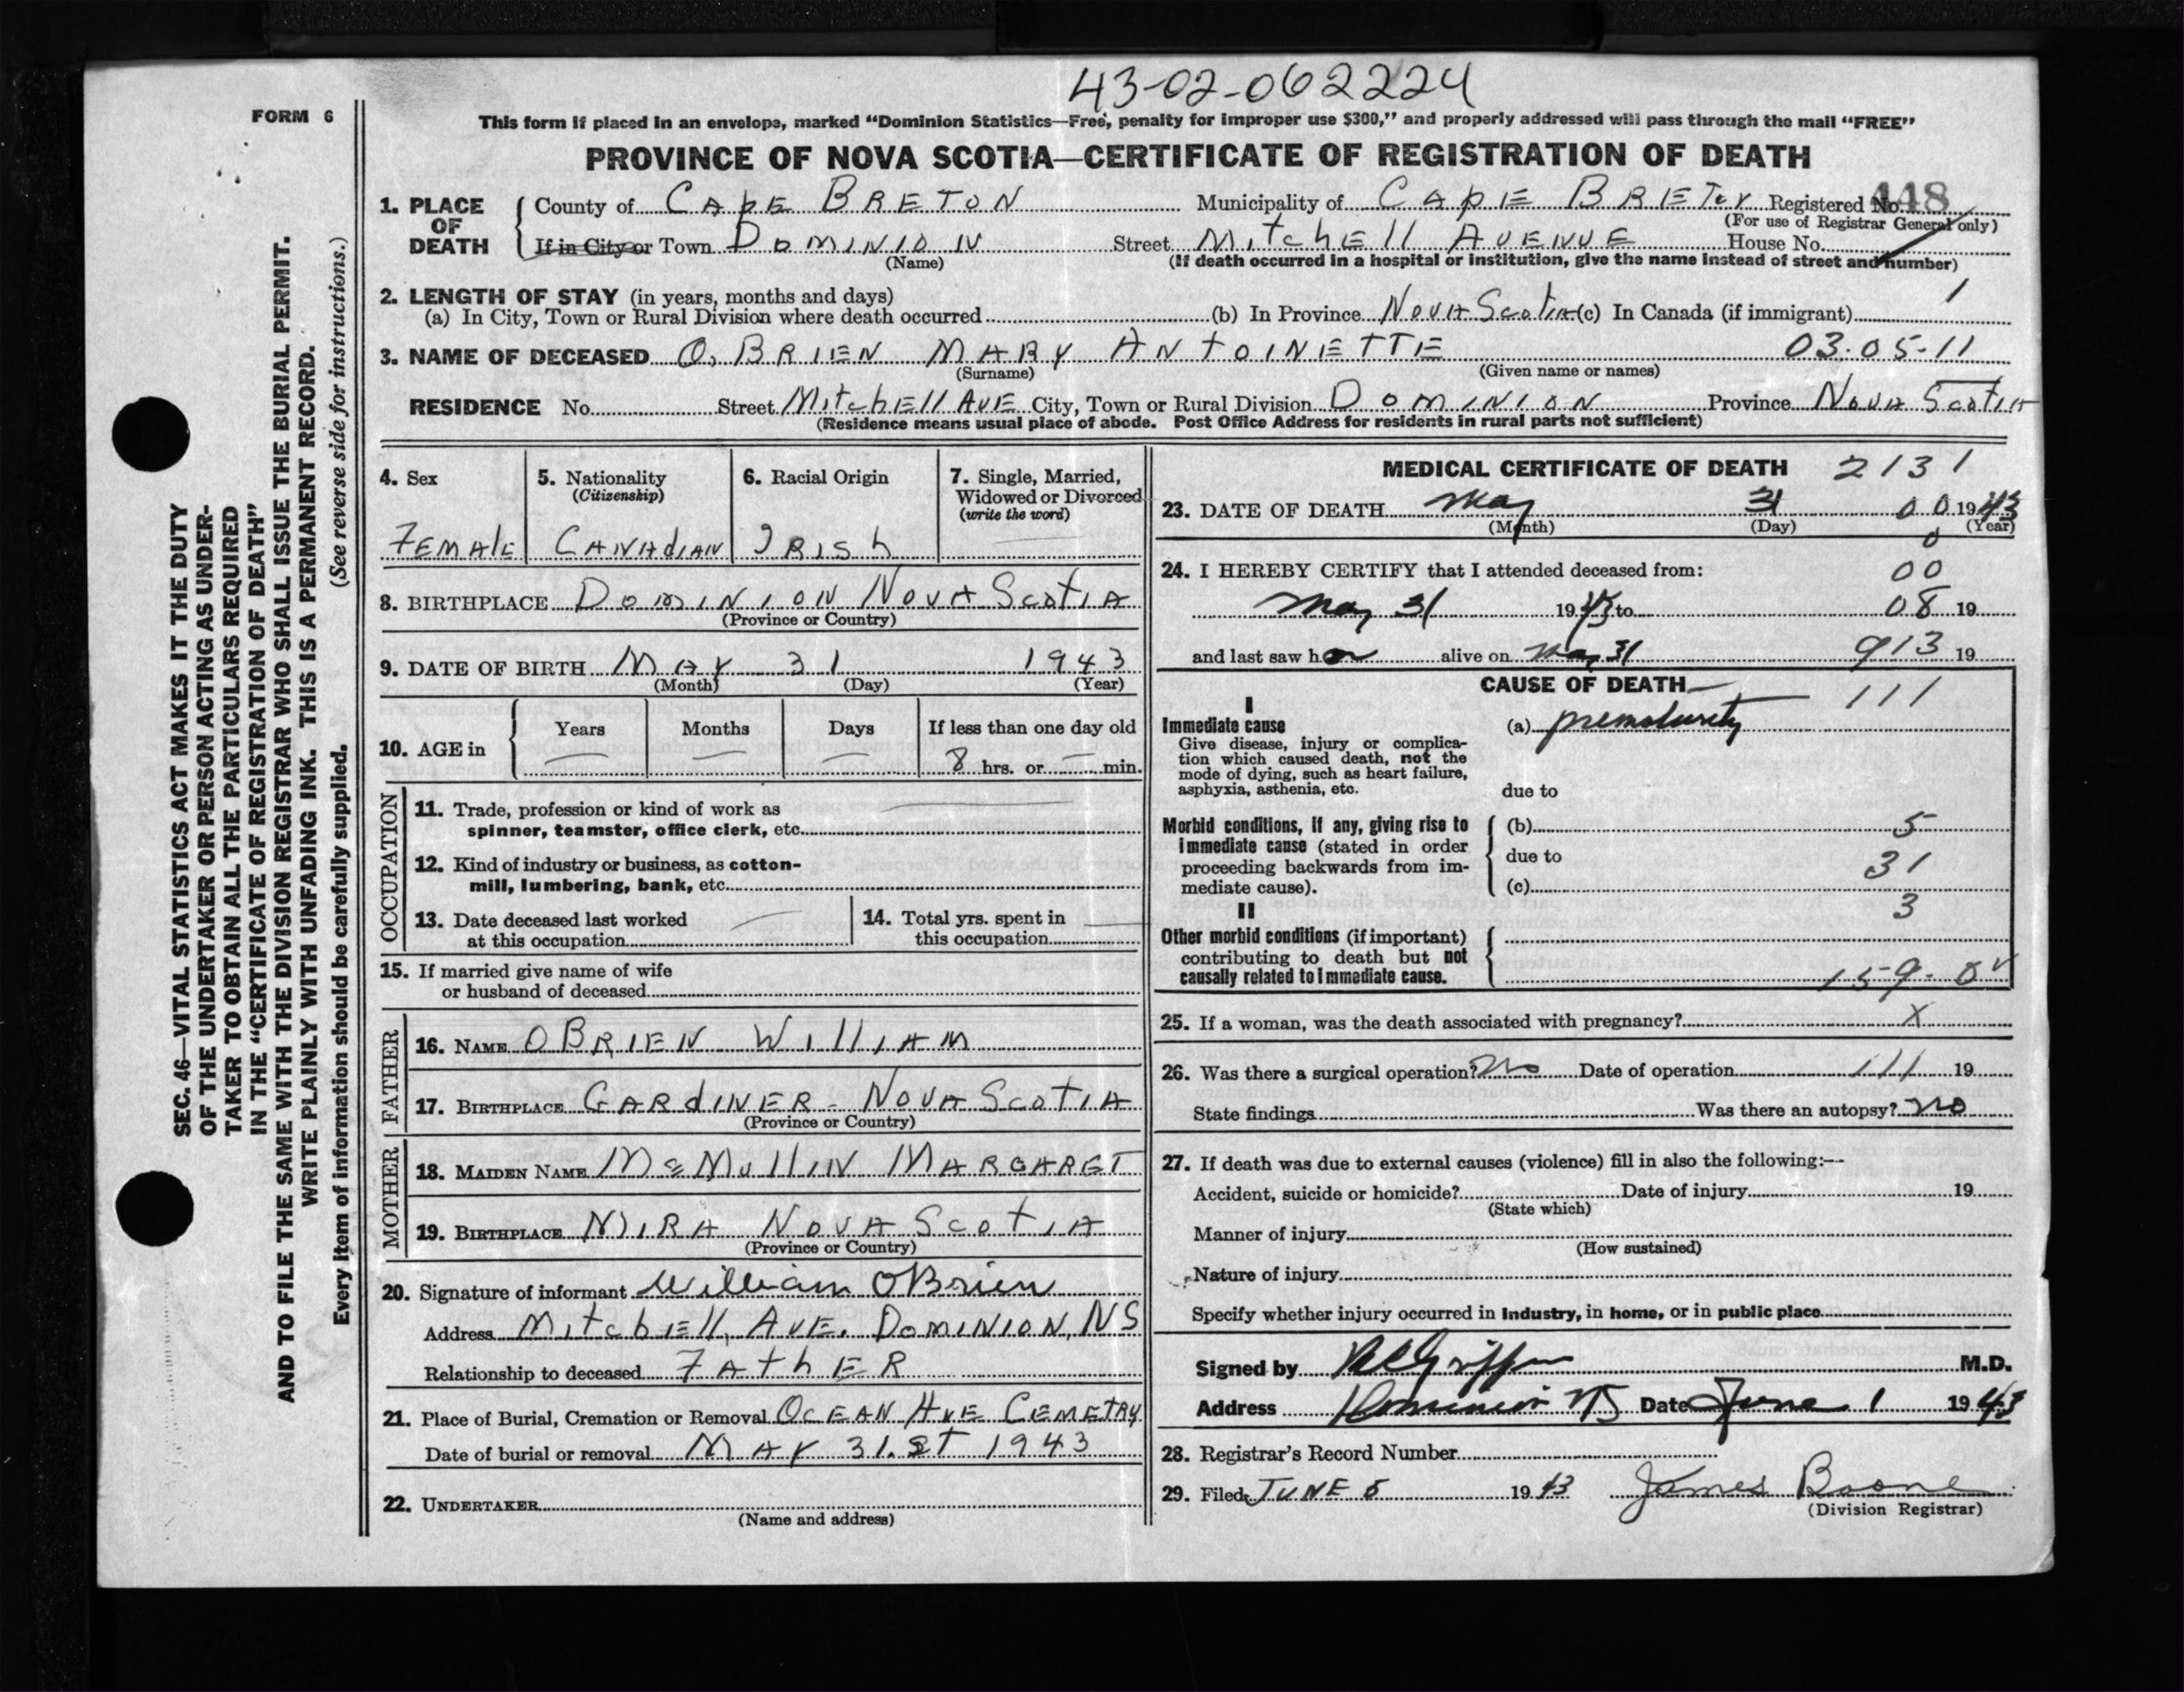 43-02-062224
FORM 6
This form if placed in an envelope, marked "Dominion Statistics—Free, penalty for improper use $300," and properly addressed will pass through the mail "FREE"
PROVINCE OF NOVA SCOTIA—CERTIFICATE OF REGISTRATION OF DEATH
1. PLACE OF DEATH
County of CAPE BRETON Municipality of CAPE BRETON Registered No. 448
(For use of Registrar General only)
If in City or Town DOMINION Street MITCHELL AVENUE House No.
(Name) (If death occurred in a hospital or institution, give the name instead of street and number)
2. LENGTH OF STAY (in years, months and days) 1
(a) In City, Town or Rural Division where death occurred (b) In Province NOVA SCOTIA (c) In Canada (if immigrant)
3. NAME OF DECEASED O,BRIEN MARY ANTOINETTE 03.05-11
(Surname) (Given name or names)
RESIDENCE No. Street MITCHELL AVE City, Town or Rural Division DOMINION Province NOVA SCOTIA
(Residence means usual place of abode. Post Office Address for residents in rural parts not sufficient)
4. Sex
FEMALE
5. Nationality
(Citizenship)
CANADIAN
6. Racial Origin
IRISH
7. Single, Married,
Widowed or Divorced
(write the word)
8. BIRTHPLACE DOMINION NOVA SCOTIA
(Province or Country)
9. DATE OF BIRTH MAY 31 1943
(Month) (Day) (Year)
10. AGE in
Years Months Days If less than one day old
8 hrs. or min.
OCCUPATION
11. Trade, profession or kind of work as
spinner, teamster, office clerk, etc.
12. Kind of industry or business, as cotton-
mill, lumbering, bank, etc.
13. Date deceased last worked
at this occupation
14. Total yrs. spent in
this occupation
15. If married give name of wife
or husband of deceased
FATHER
16. NAME OBRIEN WILLIAM
17. BIRTHPLACE GARDINER - NOVA SCOTIA
(Province or Country)
MOTHER
18. MAIDEN NAME McMULLIN MARGARET
19. BIRTHPLACE MIRA NOVA SCOTIA
(Province or Country)
20. Signature of informant William OBrien
Address MITCHELL, AVE. DOMINION, NS
Relationship to deceased FATHER
21. Place of Burial, Cremation or Removal OCEAN AVE CEMETRY
Date of burial or removal MAY 31.ST 1943
22. UNDERTAKER
(Name and address)
MEDICAL CERTIFICATE OF DEATH 2131
23. DATE OF DEATH May 31 00 1943
(Month) (Day) (Year)
0
24. I HEREBY CERTIFY that I attended deceased from: 00
May 31 1943 to 08 19
and last saw her alive on May 31 913 19
CAUSE OF DEATH
I 111
Immediate cause (a) prematurity
Give disease, injury or complica-
tion which caused death, not the
mode of dying, such as heart failure,
asphyxia, asthenia, etc.
due to
Morbid conditions, if any, giving rise to
immediate cause (stated in order
proceeding backwards from im-
mediate cause).
(b) 5
due to 31
(c)
II 3
Other morbid conditions (if important)
contributing to death but not
causally related to immediate cause. 159-0
25. If a woman, was the death associated with pregnancy? X
26. Was there a surgical operation? no Date of operation 111 19
State findings Was there an autopsy? no
27. If death was due to external causes (violence) fill in also the following:—
Accident, suicide or homicide? Date of injury 19
(State which)
Manner of injury
(How sustained)
Nature of injury
Specify whether injury occurred in industry, in home, or in public place
Signed by M.D.
Address Dominion NS Date June 1 1943
28. Registrar's Record Number
29. Filed JUNE 5 1943 James Boone
(Division Registrar)
SEC. 46—VITAL STATISTICS ACT MAKES IT THE DUTY
OF THE UNDERTAKER OR PERSON ACTING AS UNDER-
TAKER TO OBTAIN ALL THE PARTICULARS REQUIRED
IN THE "CERTIFICATE OF REGISTRATION OF DEATH"
AND TO FILE THE SAME WITH THE DIVISION REGISTRAR WHO SHALL ISSUE THE BURIAL PERMIT.
WRITE PLAINLY WITH UNFADING INK. THIS IS A PERMANENT RECORD.
Every item of information should be carefully supplied. (See reverse side for instructions.)